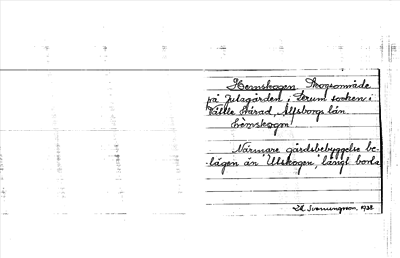 Hemskogen. Skogsområde
på Julagården i Lerum socken i
Vättle härad, Älfsborgs län.
hèmskogen!
Närmare gårdsbebyggelse be-
lägen än "Utskogen", långt borta
1938